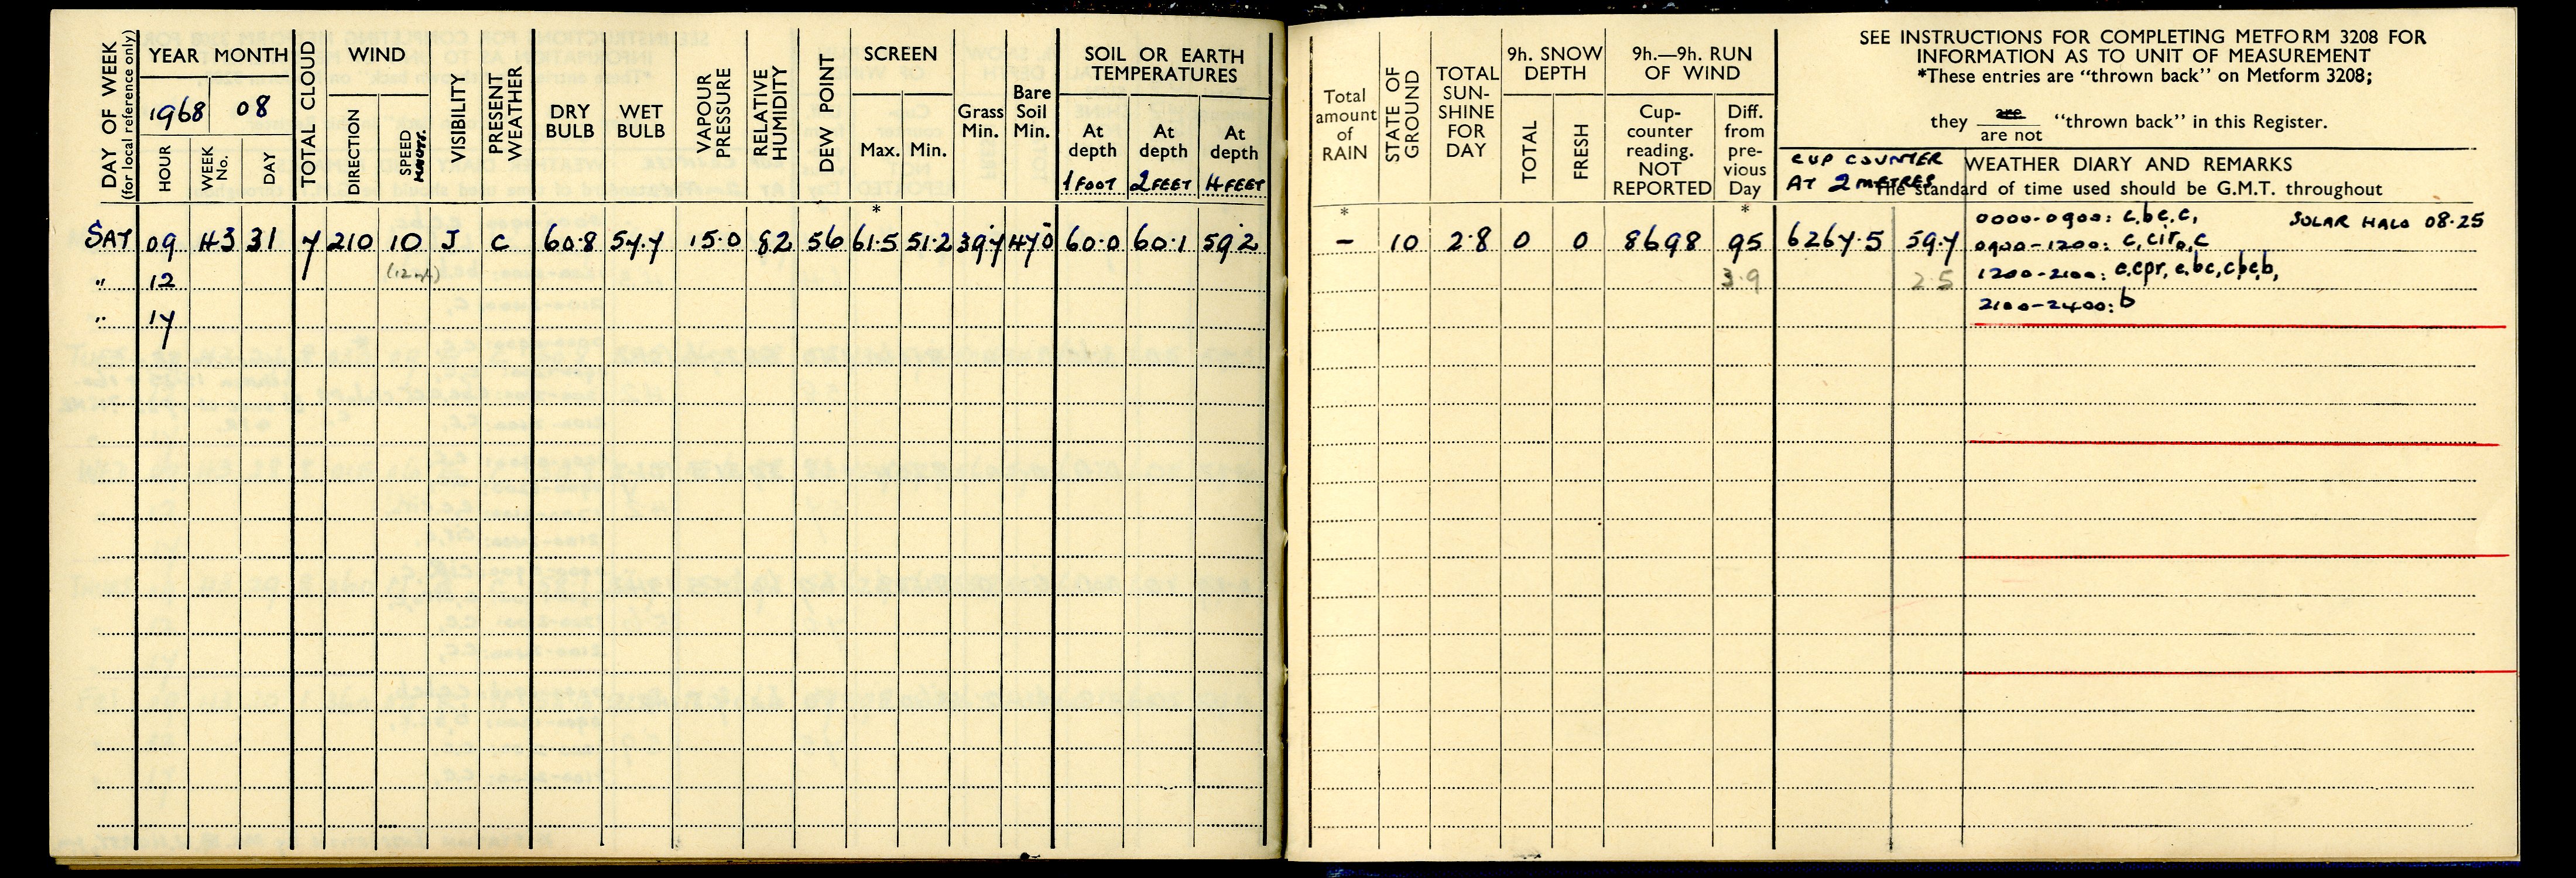 DAY OF WEEK
(for local reference only)
YEAR MONTH
1968 08
HOUR
WEEK No.
DAY
TOTAL CLOUD
WIND
DIRECTION
SPEED
VISIBILITY
PRESENT WEATHER
DRY BULB
WET BULB
VAPOUR PRESSURE
RELATIVE HUMIDITY
DEW POINT
SCREEN
Max. Min.
Grass Min.
Bare Soil Min.
SOIL OR EARTH TEMPERATURES
At depth 1 FOOT
At depth 2 FEET
At depth 4 FEET
Total amount of RAIN
STATE OF GROUND
TOTAL SUN-SHINE FOR DAY
9h. SNOW DEPTH
TOTAL
FRESH
9h.—9h. RUN OF WIND
Cup-counter reading. NOT REPORTED
Diff. from pre-vious Day
SEE INSTRUCTIONS FOR COMPLETING METFORM 3208 FOR
INFORMATION AS TO UNIT OF MEASUREMENT
*These entries are "thrown back" on Metform 3208;
they are / are not "thrown back" in this Register.
CUP COUNTER
AT 2 METRES
WEATHER DIARY AND REMARKS
The standard of time used should be G.M.T. throughout
* * *
SAT 09 43 31 7 210 10 J C 60.8 57.7 15.0 82 56 61.5 51.2 39.7 47.0 60.0 60.1 59.2 – 10 2.8 0 0 8698 95 6267.5 59.7
" 12 3.9 2.5
" 17
0000-0900: c,bc,c, SOLAR HALO 08.25
0900-1200: c,ciro,c
1200-2100: c,cpr,c,bc,c,bc,b,
2100-2400: b